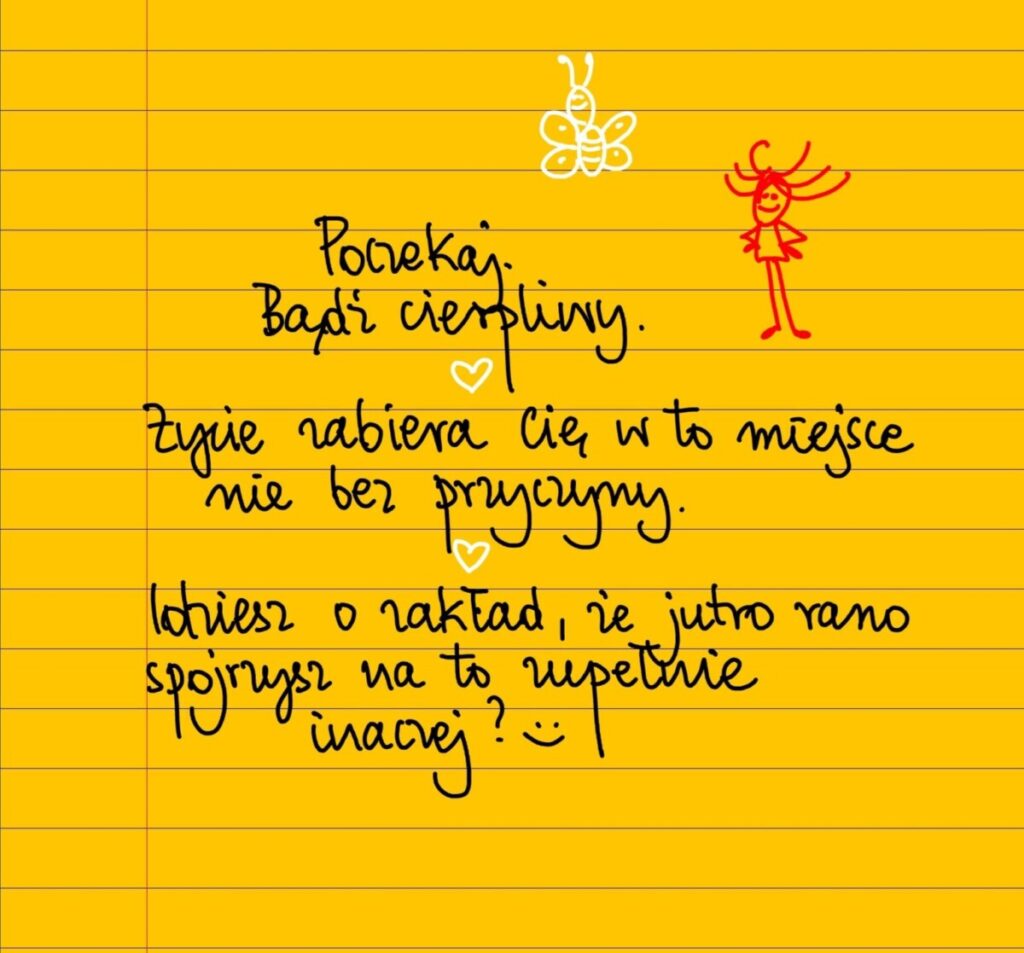 Poczekaj.
Bądź cierpliwy.
Życie zabiera Cię w to miejsce
nie bez przyczyny.
Idziesz o zakład, że jutro rano
spojrzysz na to zupełnie
inaczej? :)